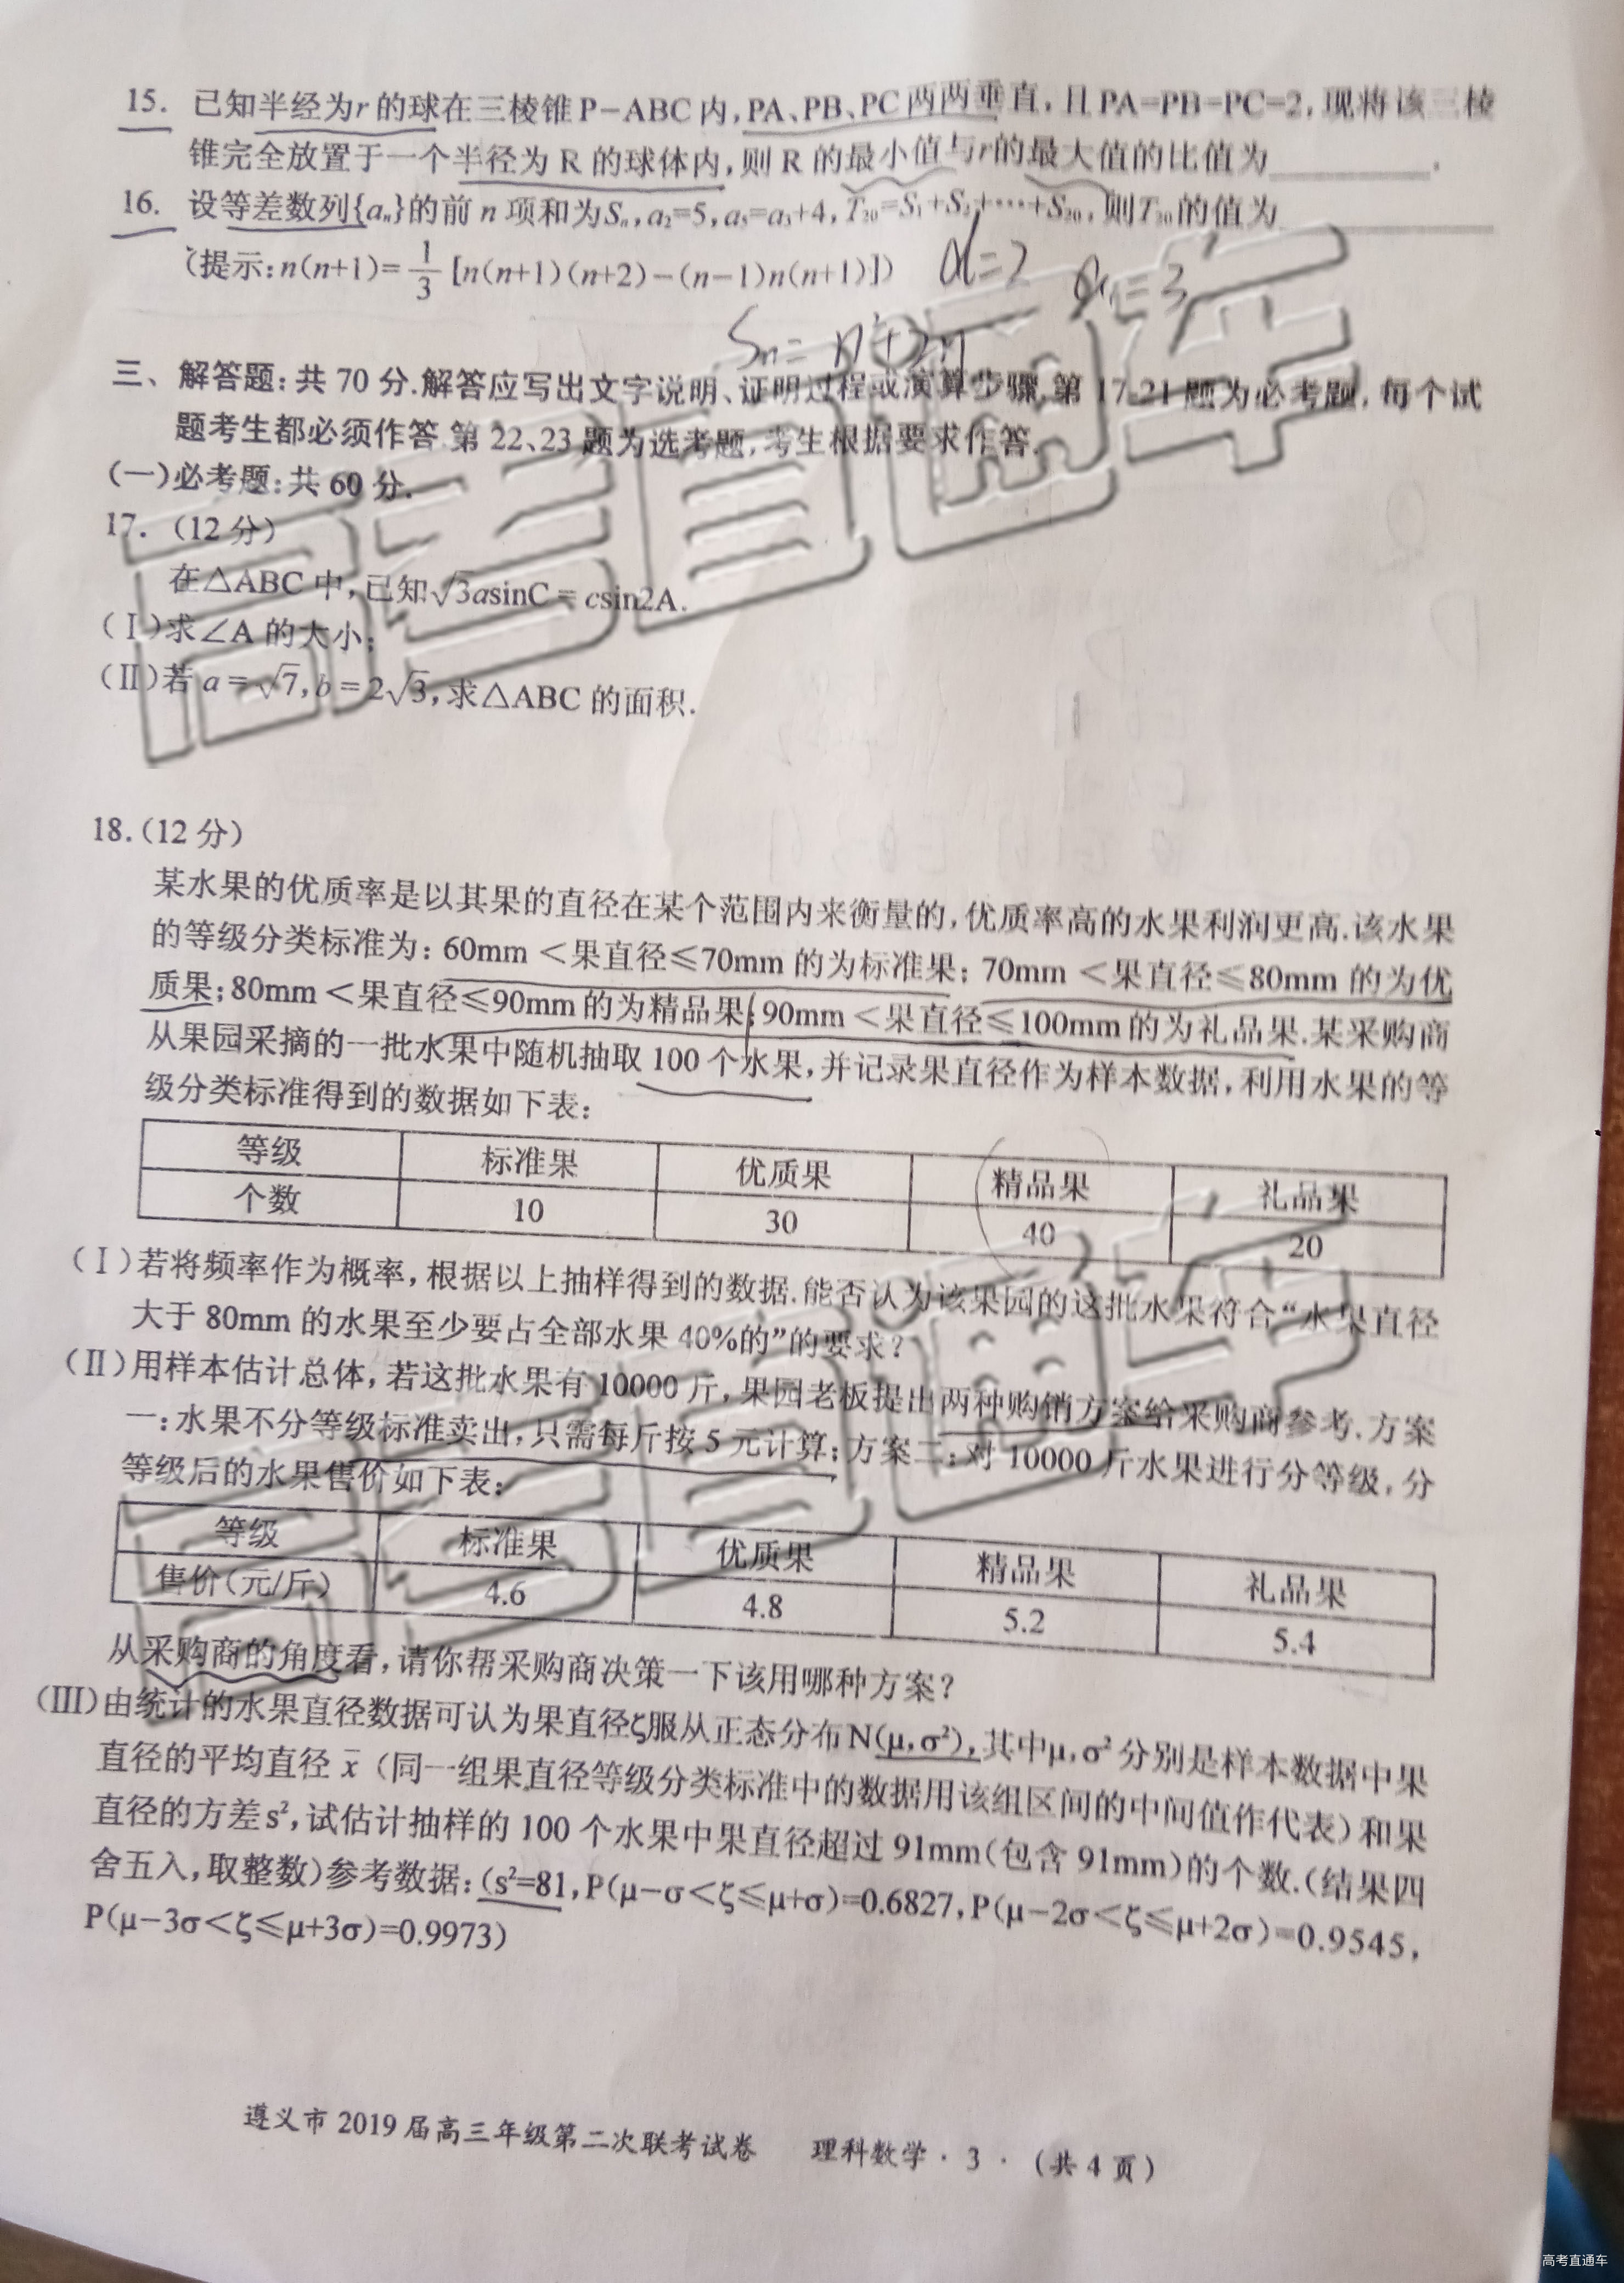 15. 已知半经为r的球在三棱锥P-ABC内,PA、PB、PC两两垂直,且PA=PB=PC=2,现将该三棱
锥完全放置于一个半径为R的球体内,则R的最小值与r的最大值的比值为________.
16. 设等差数列{aₙ}的前n项和为Sₙ,a₂=5,a₅=a₃+4,T₂₀=S₁+S₂+⋯+S₂₀,则T₂₀的值为________
(提示:n(n+1)=1/3[n(n+1)(n+2)-(n-1)n(n+1)])
d=2 a₁=3
Sₙ=n²+2n
三、解答题:共70分.解答应写出文字说明、证明过程或演算步骤.第17-21题为必考题,每个试
题考生都必须作答.第22、23题为选考题,考生根据要求作答.
(一)必考题:共60分.
17.(12分)
在△ABC中,已知√3asinC=csin2A.
(Ⅰ)求∠A的大小;
(Ⅱ)若a=√7,b=2√3,求△ABC的面积.
18.(12分)
某水果的优质率是以其果的直径在某个范围内来衡量的,优质率高的水果利润更高.该水果
的等级分类标准为:60mm<果直径≤70mm的为标准果;70mm<果直径≤80mm的为优
质果;80mm<果直径≤90mm的为精品果;90mm<果直径≤100mm的为礼品果.某采购商
从果园采摘的一批水果中随机抽取100个水果,并记录果直径作为样本数据,利用水果的等
级分类标准得到的数据如下表:
等级 标准果 优质果 精品果 礼品果
个数 10 30 40 20
(Ⅰ)若将频率作为概率,根据以上抽样得到的数据.能否认为该果园的这批水果符合“水果直径
大于80mm的水果至少要占全部水果40%的”的要求?
(Ⅱ)用样本估计总体,若这批水果有10000斤,果园老板提出两种购销方案给采购商参考.方案
一:水果不分等级标准卖出,只需每斤按5元计算;方案二:对10000斤水果进行分等级,分
等级后的水果售价如下表:
等级 标准果 优质果 精品果 礼品果
售价(元/斤) 4.6 4.8 5.2 5.4
从采购商的角度看,请你帮采购商决策一下该用哪种方案?
(III)由统计的水果直径数据可认为果直径ζ服从正态分布N(μ,σ²),其中μ,σ²分别是样本数据中果
直径的平均直径x̄(同一组果直径等级分类标准中的数据用该组区间的中间值作代表)和果
直径的方差s²,试估计抽样的100个水果中果直径超过91mm(包含91mm)的个数.(结果四
舍五入,取整数)参考数据:(s²=81,P(μ-σ<ζ≤μ+σ)=0.6827,P(μ-2σ<ζ≤μ+2σ)=0.9545,
P(μ-3σ<ζ≤μ+3σ)=0.9973)
遵义市2019届高三年级第二次联考试卷 理科数学·3·(共4页)
高考直通车